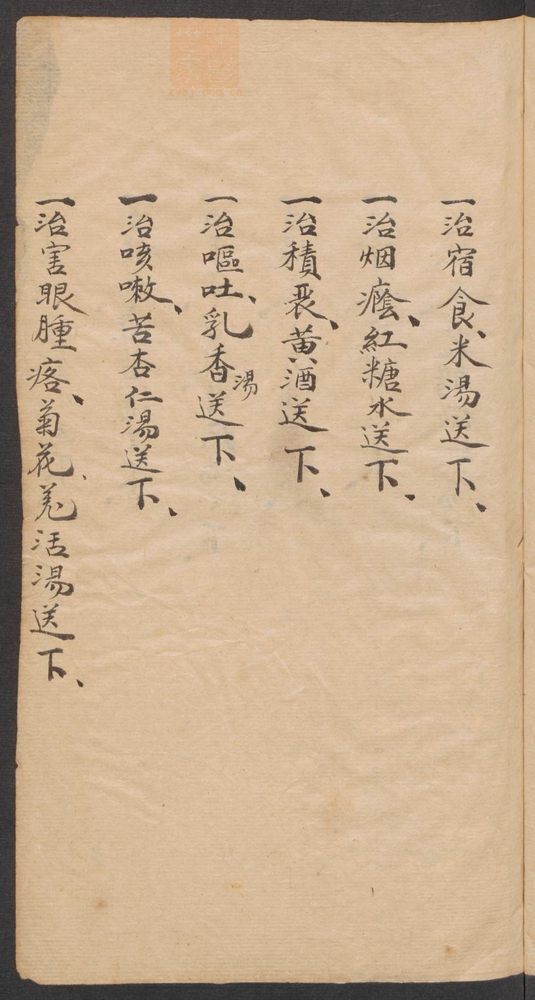 一治宿食、米湯送下、
一治烟癮、紅糖水送下、
一治積聚、黄酒送下、
一治嘔吐、乳香湯送下、
一治咳嗽、苦杏仁湯送下、
一治害眼腫疼、菊花、羌活湯送下、